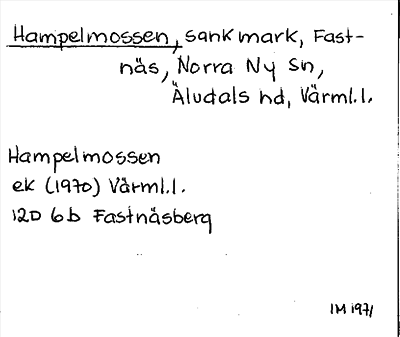 Hampelmossen, sankmark, Fast-
näs, Norra Ny Sn,
Älvdals hd, Värml.l.
Hampelmossen
ek (1970) Värml.l.
12D 6b Fastnäsberg
IM 1971